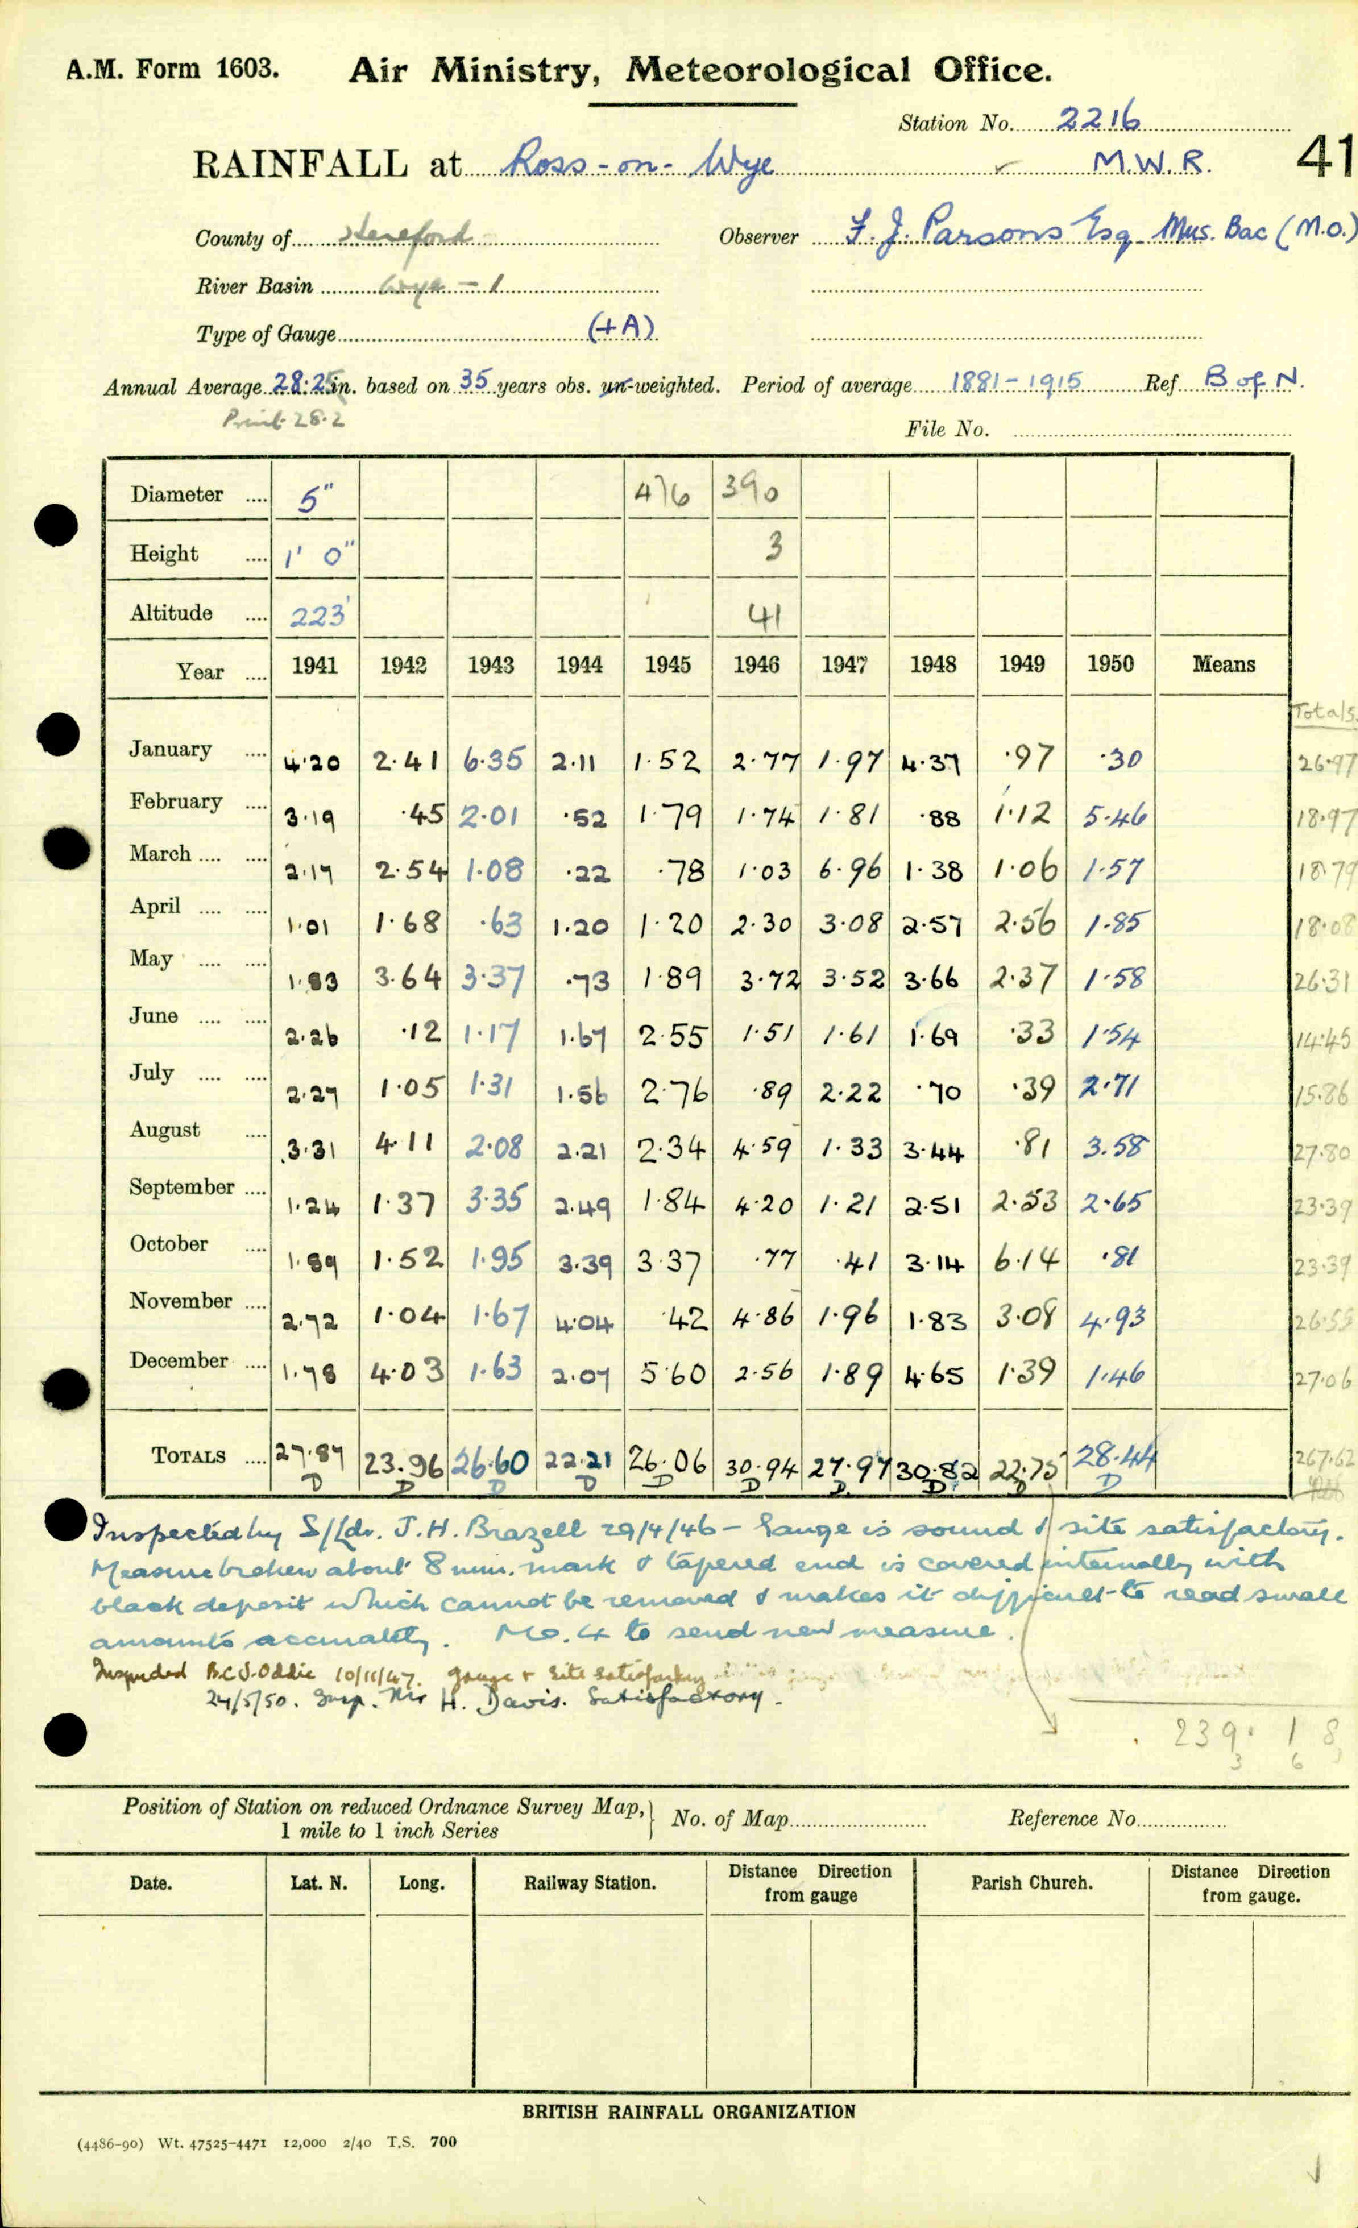 A.M. Form 1603. Air Ministry, Meteorological Office.
Station No. 2216
RAINFALL at Ross-on-Wye M.W.R. 41
County of Hereford Observer F. J. Parsons Esq. Mus. Bac (M.O.)
River Basin Wye - 1
Type of Gauge (+A)
Annual Average 28.25 in. based on 35 years obs. un-weighted. Period of average 1881-1915 Ref. B of N.
Print 28.2
File No.
Diameter 5" 476 390
Height 1' 0" 3
Altitude 223' 41
Year 1941 1942 1943 1944 1945 1946 1947 1948 1949 1950 Means
Totals
January 4.20 2.41 6.35 2.11 1.52 2.77 1.97 4.37 .97 .30 26.97
February 3.19 .45 2.01 .52 1.79 1.74 1.81 .88 1.12 5.46 18.97
March 2.17 2.54 1.08 .22 .78 1.03 6.96 1.38 1.06 1.57 18.79
April 1.01 1.68 .63 1.20 1.20 2.30 3.08 2.57 2.56 1.85 18.08
May 1.83 3.64 3.37 .73 1.89 3.72 3.52 3.66 2.37 1.58 26.31
June 2.26 .12 1.17 1.67 2.55 1.51 1.61 1.69 .33 1.54 14.45
July 2.27 1.05 1.31 1.56 2.76 .89 2.22 .70 .39 2.71 15.86
August 3.31 4.11 2.08 2.21 2.34 4.59 1.33 3.44 .81 3.58 27.80
September 1.24 1.37 3.35 2.49 1.84 4.20 1.21 2.51 2.53 2.65 23.39
October 1.89 1.52 1.95 3.39 3.37 .77 .41 3.14 6.14 .81 23.39
November 2.72 1.04 1.67 4.04 .42 4.86 1.96 1.83 3.08 4.93 26.55
December 1.78 4.03 1.63 2.07 5.60 2.56 1.89 4.65 1.39 1.46 27.06
TOTALS 27.87 23.96 26.60 22.21 26.06 30.94 27.97 30.82 22.75 28.44 267.62
D D D D D D D D D D
Inspected by S/Ldr. J. H. Brazell 29/4/46 - Gauge is sound & site satisfactory.
Measure broken about 8 mm. mark & tapered end is covered internally with
black deposit which cannot be removed & makes it difficult to read small
amounts accurately. Mo.4 to send new measure.
Inspected B.C.V. Oddie 10/11/47. gauge & site satisfactory
24/5/50. Insp. Mr H. Davis. Satisfactory.
239. 1 8
3 6
Position of Station on reduced Ordnance Survey Map, No. of Map Reference No.
1 mile to 1 inch Series
Date. Lat. N. Long. Railway Station. Distance Direction from gauge Parish Church. Distance Direction from gauge.
BRITISH RAINFALL ORGANIZATION
(4486-90) Wt. 47525-4471 12,000 2/40 T.S. 700